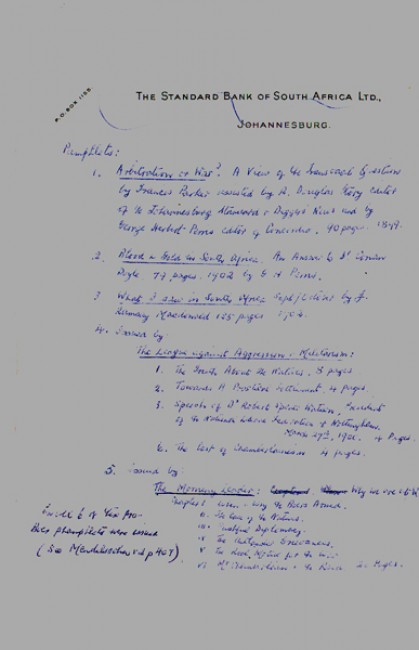 P.O. BOX 1155.
THE STANDARD BANK OF SOUTH AFRICA LTD.,
JOHANNESBURG.
Pamphlets:
1. Arbitration or War? A View of the Transvaal Question
by Frances Parker assisted by R. Douglas Story editor
of the Johannesburg Standard & Diggers News and by
George Herbert Perris editor of Concordia. 90 pages. 1899.
2. Blood & Gold in South Africa. An Answer to Dr Conan
Doyle 77 pages. 1902 by G H Perris.
3. What I saw in South Africa by J.
Ramsay Macdonald 135 pages
4. Issued by
The League Against Aggression & Militarism:
1. The Truth About the Natives. 8 pages
2. Towards A Settlement. 4 pages.
3. Speech of Dr Robert Spence Watson, President
of the National Liberal Federation at Nottingham.
March 27th, 1900. 4 Pages.
6. The Cost of Chamberlainism 4 pages.
5. Issued by
The Morning Leader: Why we are at War
Chapters I - Why the Boers Armed.
of the Natives.
Diplomacy.
The Uitlander Grievances.
V The
VI Mr Chamberlain & the Pages.
In all 6 of the Pro
Boer pamphlets were issued
(See p 407).